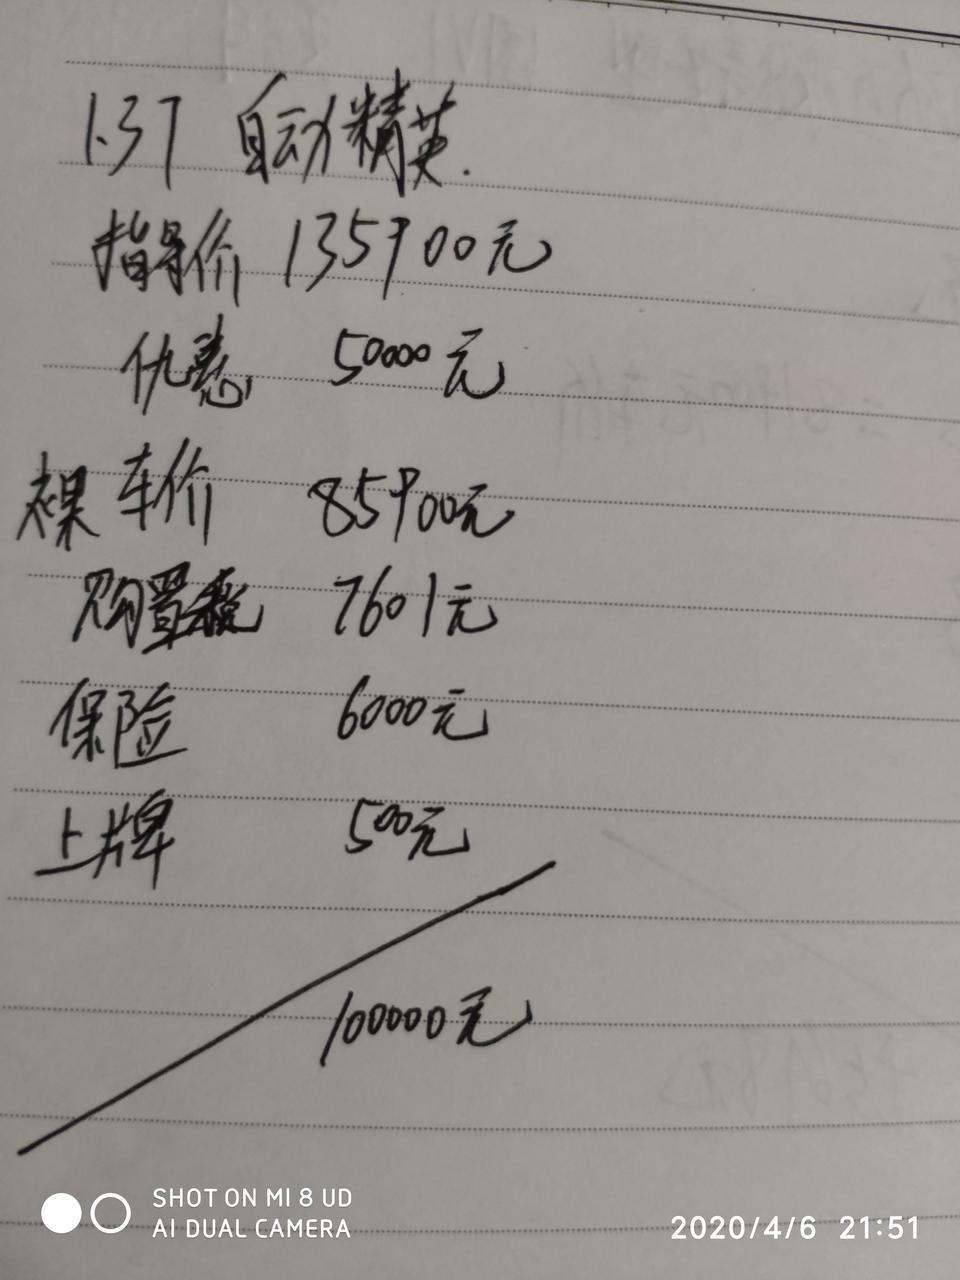 1.3T 自动精英.
指导价 135900元
优惠 50000元
裸车价 85900元
购置税 7601元
保险 6000元
上牌 500元
100000元
SHOT ON MI 8 UD
AI DUAL CAMERA
2020/4/6 21:51